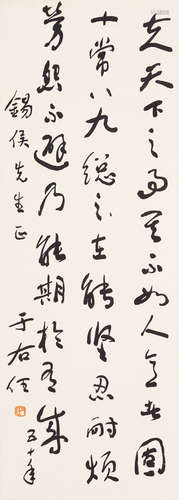 夫天下之事其不如人意者固
十常八九總之在能堅忍耐煩
勞怨不避乃能期於有成
錫侯先生正
于右任
五十年